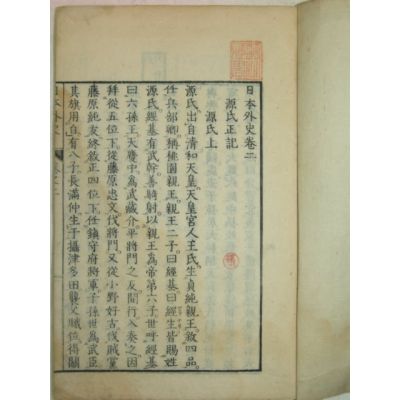 日本外史卷二
源氏正記
源氏上
源氏出自清和天皇天皇宮人王氏生貞純親王敘四品
任兵部卿稱桃園親王親王二子曰經基曰經生皆賜姓
源氏經基有武幹善騎射以親王為帝第六子世呼經基
曰六孫王天慶中為武藏介平將門之反間行入奏之因
拜從五位下從藤原忠文伐將門又從小野好古伐賊黨
藤原純友終敘正四位下任鎮守府將軍子孫世為武臣
其旗用白有八子長滿仲生于攝津多田襲父職位得關
日本外史 卷之二